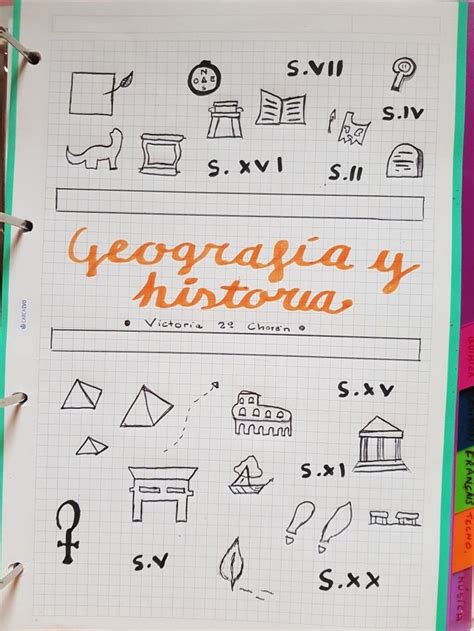 S.VII
N
O E
S
S.IV
S. XVI
S.II
Geografía y
historia
• Victoria 2º
S.XV
S.XI
S.V
S.XX
FRANÇAIS
TECNO.
MÚSICA